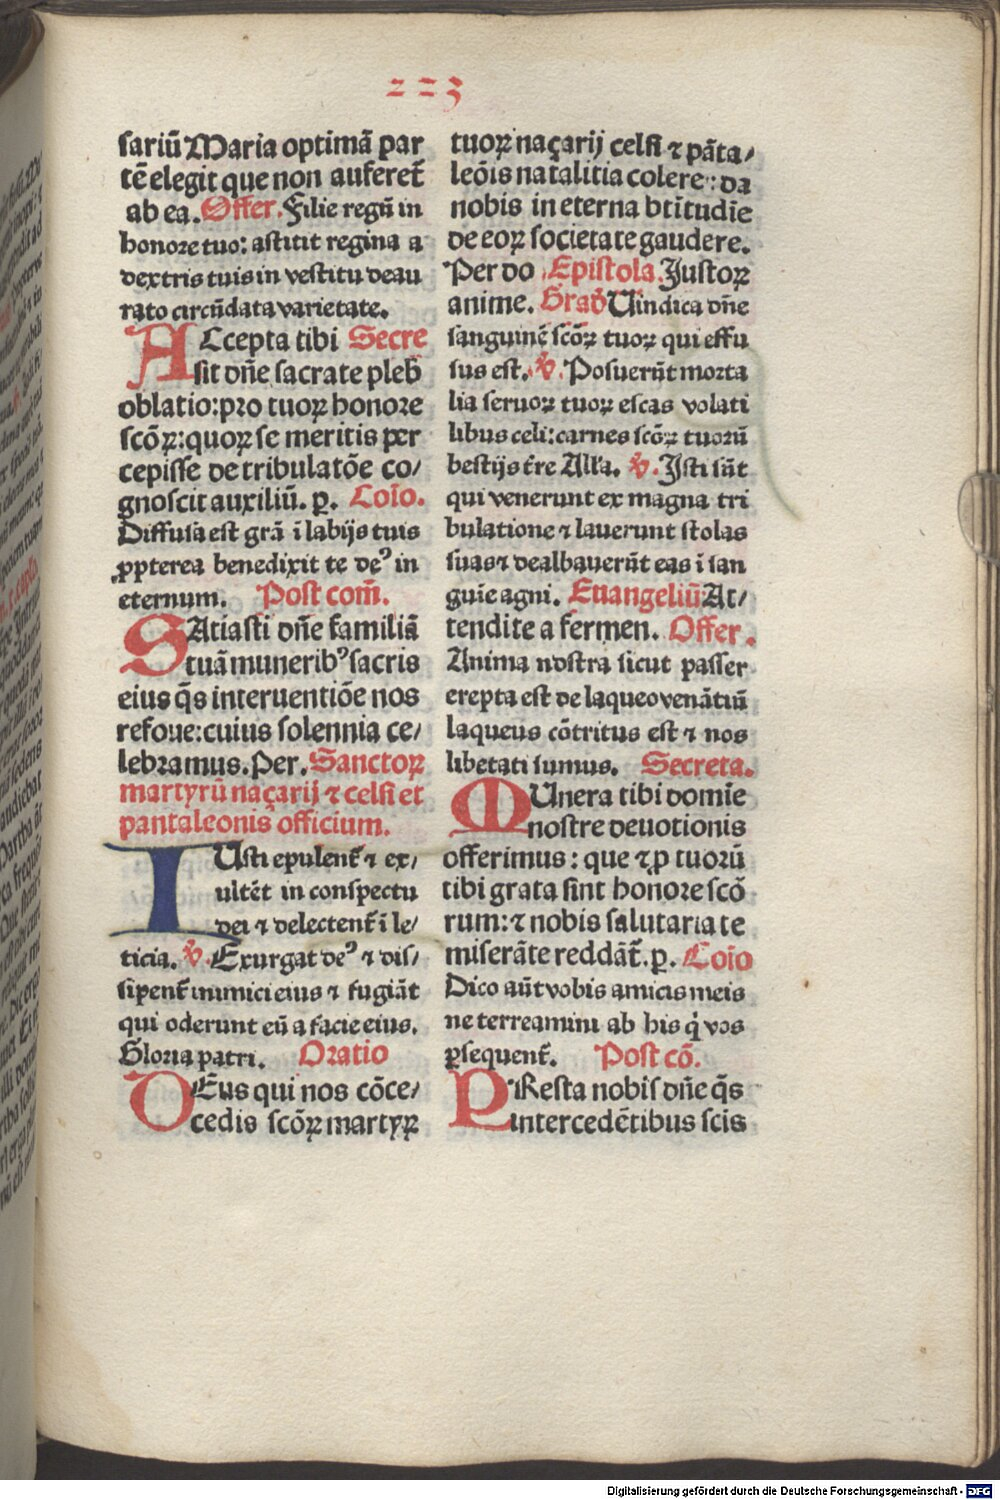 223
sariū Maria optimā par
tē elegit que non auferet̄
ab ea. Offer. Filie regū in
honore tuo: astitit regina a
dextris tuis in vestitu deau
rato circūdata varietate.
ACcepta tibi Secre
sit dn̄e sacrate pleb̄
oblatio: pro tuoꝝ honore
scōꝝ: quoꝝ se meritis per
cepisse de tribulatōe co/
gnoscit auxiliū. p. Coīo.
Diffusa est grā ī labijs tuis
ꝓpterea benedixit te deꝰ in
eternum. Post com̄.
SAtiasti dn̄e familiā
tuā muneribꝰ sacris
eius q̄s interuentiōe nos
refoue: cuius solennia ce/
lebramus. Per. Sanctoꝝ
martyrū naçarij ⁊ celsi et
pantaleonis officium.
IUsti epulent̄ ⁊ ex/
ultēt in conspectu
dei ⁊ delectent̄ ī le/
ticia. ℣. Exurgat deꝰ ⁊ dis/
sipent̄ inimici eius ⁊ fugiāt
qui oderunt eū a facie eius.
Gloria patri. Oratio
DEus qui nos cōce/
cedis scōꝝ martyꝝ
tuoꝝ naçarij celsi ⁊ pāta/
leōis natalitia colere: da
nobis in eterna btītudīe
de eoꝝ societate gaudere.
Per do Epistola. Justoꝝ
anime. Grad̄ Uindica dn̄e
sanguinē scōꝝ tuoꝝ qui effu
sus est. ℣. Posuerūt morta
lia seruoꝝ tuoꝝ escas volati
libus celi: carnes scōꝝ tuorū
bestijs t̄re Alla. ℣. Justi sūt
qui venerunt ex magna tri
bulatione ⁊ lauerunt stolas
suas ⁊ dealbauerūt eas ī san
guīe agni. Euangeliū At/
tendite a fermen. Offer.
Anima nostra sicut passer
erepta est de laqueo venātiū
laqueus cōtritus est ⁊ nos
libetati sumus. Secreta.
MUnera tibi domīe
nostre deuotionis
offerimus: que ⁊ ꝓ tuorū
tibi grata sint honore scō
rum: ⁊ nobis salutaria te
miserāte reddāt̄. p. Coīo
Dico aūt vobis amicis meis
ne terreamini ab his q̇ vos
ꝑsequent̄. Post cō.
PResta nobis dn̄e q̄s
intercedētibus scis
Digitalisierung gefördert durch die Deutsche Forschungsgemeinschaft - DFG